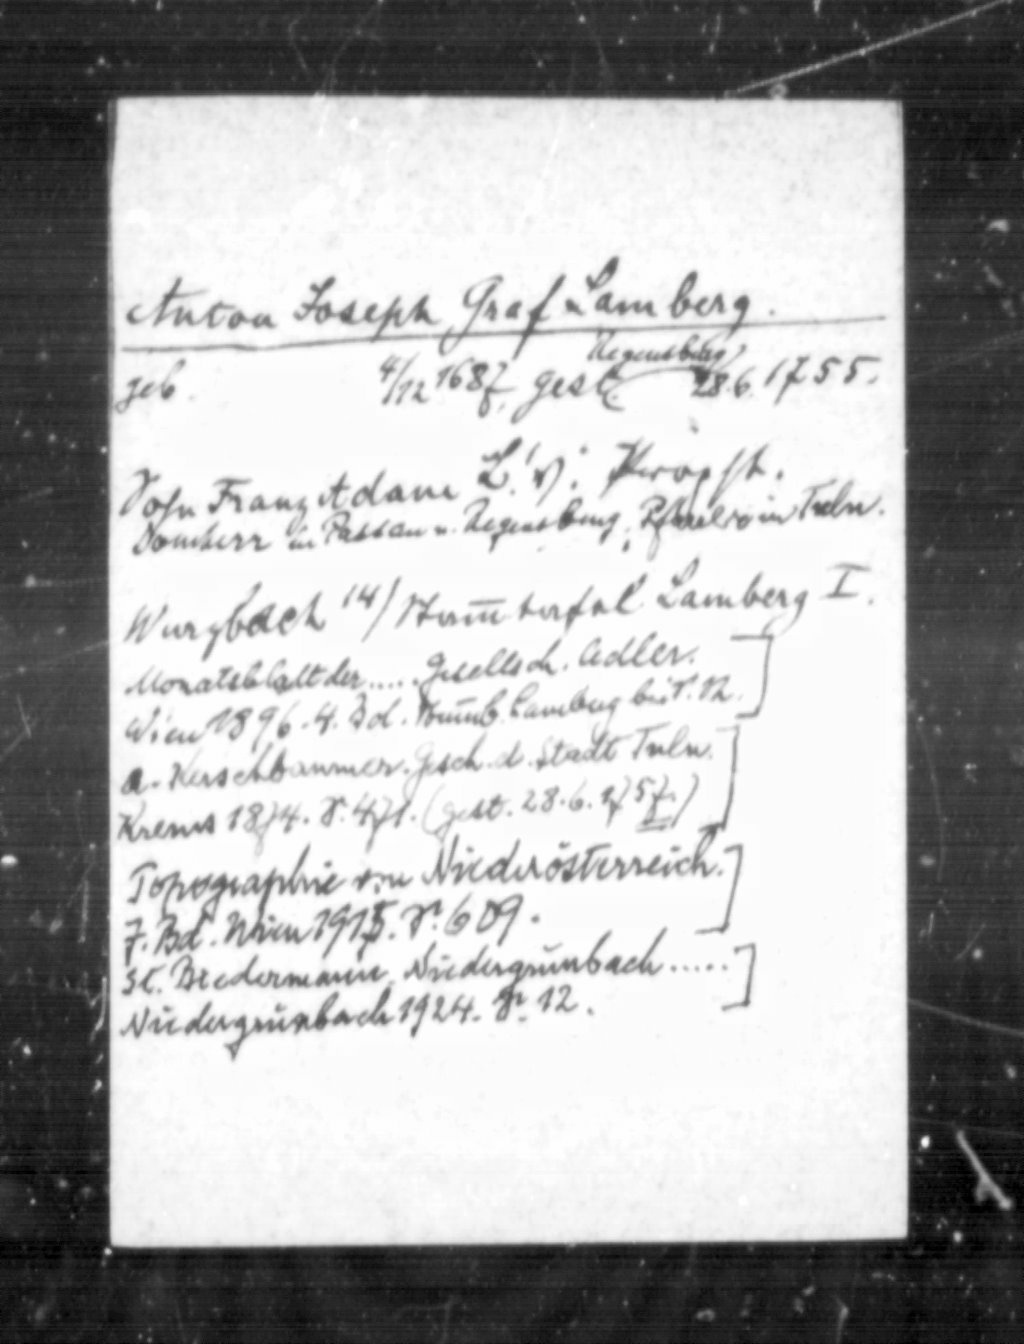 Anton Joseph Graf Lamberg.
geb. 4/12 1687, gest. (Regensburg) 28.6.1755.
Sohn Franz Adam L.'s; Propst.
Domherr in Passau u. Regensburg, Pfarrer in Tuln.
Wurzbach 14/ Stam̅tafel Lamberg I.
Monatsblatt der ..... Gesellsch. Adler.
Wien 1896. 4. Bd. Stam̅b. Lamberg bei S.
A. Kerschbaumer. Gesch. d. Stadt Tuln.
Krems 1874. S. 471. (gest. 28.6.1757.)
Topographie von Niederösterreich.
7. Bd. Wien 1915. S. 609.
St. Biedermann, Niedergrünbach .....
Niedergrünbach 1924. S. 12.